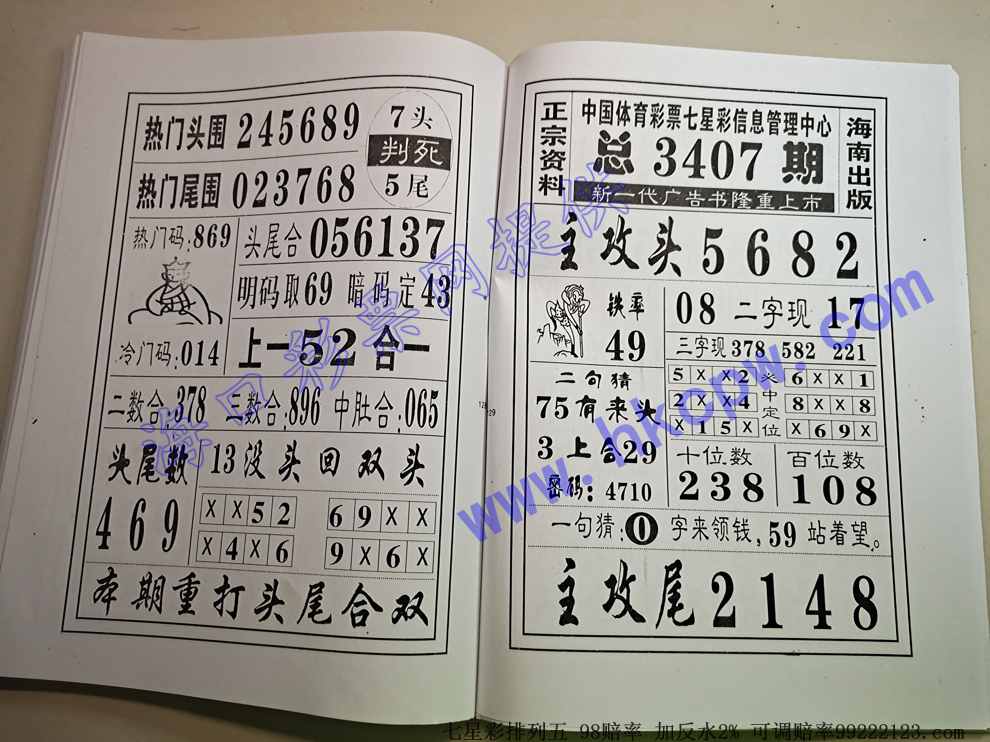 热门头围 245689
热门尾围 023768
7头
判死
5尾
热门码:869
头尾合 056137
明码取69 暗码定43
冷门码:014
上一52合一
二数合:378 三数合:896 中肚合:065
头尾数
469
13没头回双头
X X 5 2
6 9 X X
X 4 X 6
9 X 6 X
本期重打头尾合双
正宗资料
中国体育彩票七星彩信息管理中心
总 3407 期
新一代广告书隆重上市
海南出版
主攻头 5682
铁率
49
08 二字现 17
三字现 378 582 221
二句猜
75有来头
3上合29
密码: 4710
5 X X 2
2 X X 4
X 1 5 X
中定位
6 X X 1
8 X X 8
X 6 9 X
十位数
238
百位数
108
一句猜: 0 字来领钱, 59 站着望。
主攻尾 2148
129
www.hkcpw.com
七星彩排列五 98赔率 加反水2% 可调赔率99222123.com